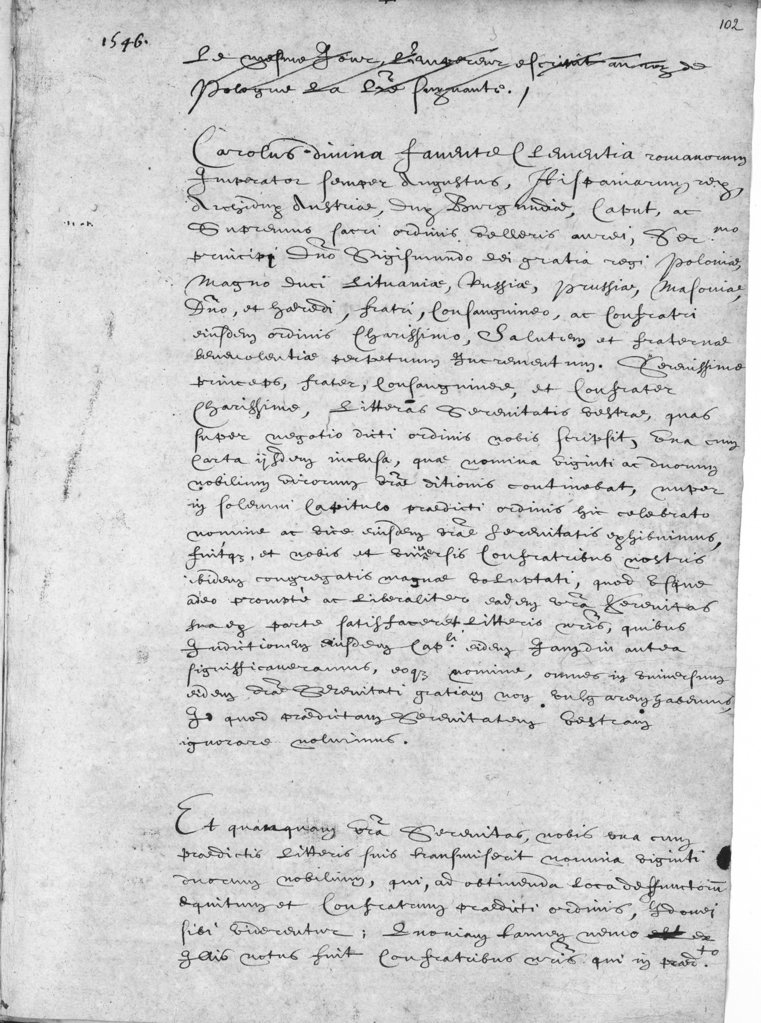 102
1546.
Le mesme Jour, L'empereur escrivit au roy de
Pologne La Lre suyvante.
Carolus divina favente Clementia romanorum
Imperator semper Augustus, Hispaniarum rex,
Archidux Austriae, dux Burgundiae, Caput, ac
Supremus sacri ordinis velleris aurei, Ser.mo
principi Dno Sigismundo dei gratia regi Poloniae,
Magno duci Lituaniae, Russiae, Prussiae, Masoviae,
Dno, et haeredi, fratri, Consanguineo, ac Confratri
eiusdem ordinis Charissimo, Salutem et fraternae
benevolentiae perpetuum Incrementum. Serenissime
princeps, frater, Consanguinee, et Confrater
Charissime, Litteras Serenitatis vestrae, quas
super negotio dicti ordinis nobis scripsit, una cum
Carta ijsdem inclusa, quae nomina viginti ac duorum
nobilium virorum vrae ditionis continebat, nuper
in solemni Capitulo praedicti ordinis hic celebrato
nomine ac vice eiusdem vrae serenitatis exhibuimus,
fuitq3, et nobis et universis Confratribus nostris
ibidem congregatis magnae voluptati, quod usque
adeo prompte ac liberaliter eadem vra Serenitas
sua ex parte satisfaceret Litteris nris, quibus
Indictionem eiusdem Cap.li eidem Iamdiu antea
significaveramus, eoq3 nomine, omnes in universum
eidem vrae Serenitati gratiam non vulgarem habemus,
Id quod praedictam Serenitatem vestram
ignorare noluimus.
Et quanquam vra Serenitas, nobis una cum
praedictis Litteris suis transmiserit nomina viginti
duorum nobilium, qui, ad obtinenda Loca deffunctorum
equitum et Confratrum praedicti ordinis, Idonei
sibi viderentur; Quoniam tamen nemo ex
Illis notus fuit Confratribus nris qui in praed.to